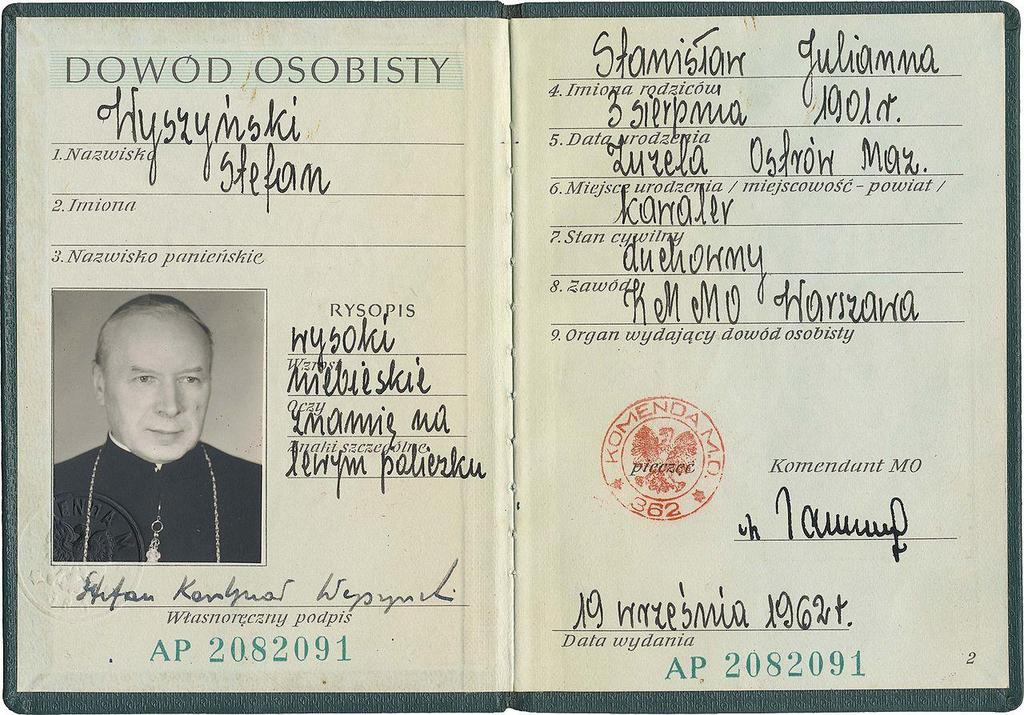 DOWÓD OSOBISTY
Wyszyński
1. Nazwisko
Stefan
2. Imiona
3. Nazwisko panieńskie
RYSOPIS
wysoki
Wzrost
niebieskie
Oczy
znamię na
Znaki szczególne
lewym policzku
ENDA M
Stefan Kardynał Wyszyński
Własnoręczny podpis
AP 2082091
Stanisław Julianna
4. Imiona rodziców
3 sierpnia 1901 r.
5. Data urodzenia
Zuzela Ostrów Maz.
6. Miejsce urodzenia / miejscowość - powiat /
kawaler
7. Stan cywilny
duchowny
8. Zawód
KMMO Warszawa
9. Organ wydający dowód osobisty
KOMENDA M.O.
pieczęć
362
Komendant MO
19 września 1962 r.
Data wydania
AP 2082091
2